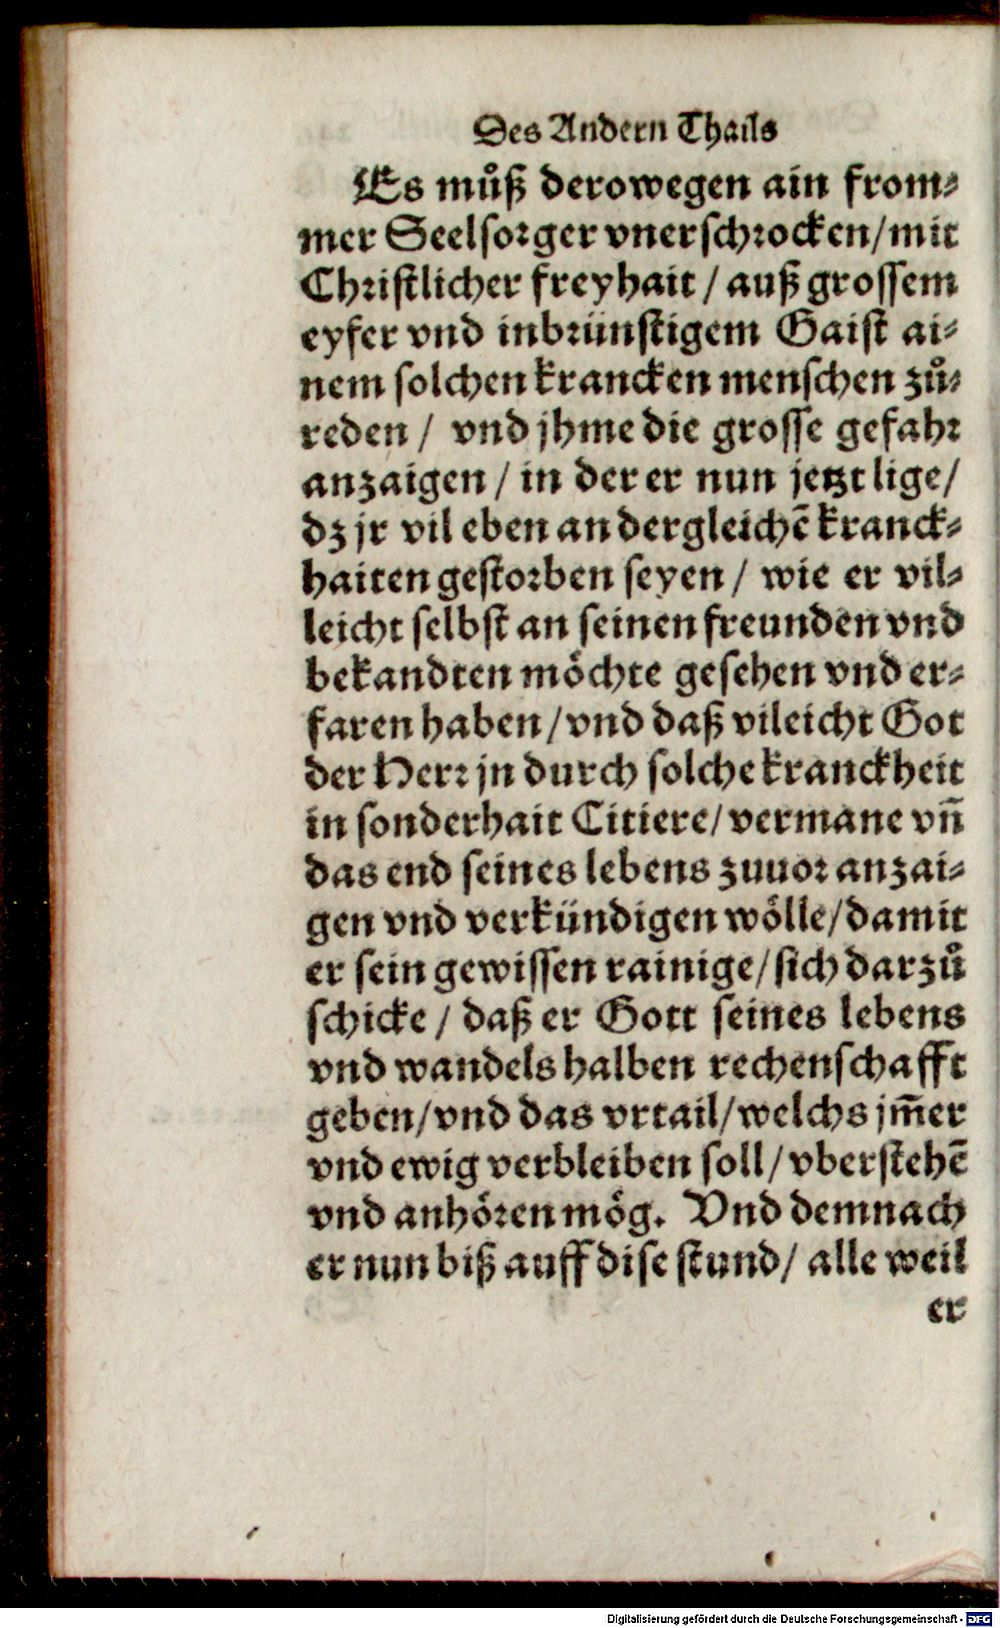 Des Andern Thails
Es můß derowegen ain from⸗
mer Seelsorger vnerschrocken/mit
Christlicher freyhait / auß grossem
eyfer vnd inbrünstigem Gaist ai⸗
nem solchen krancken menschen zů⸗
reden / vnd jhme die grosse gefahr
anzaigen / in der er nun jetzt lige/
dz jr vil eben an dergleichē kranck⸗
haiten gestorben seyen / wie er vil⸗
leicht selbst an seinen freunden vnd
bekandten möchte gesehen vnd er⸗
faren haben/vnd daß vileicht Got
der Herr jn durch solche kranckheit
in sonderhait Citiere/vermane vñ
das end seines lebens zuuor anzai⸗
gen vnd verkündigen wölle/damit
er sein gewissen rainige/sich darzů
schicke / daß er Gott seines lebens
vnd wandels halben rechenschafft
geben/vnd das vrtail/welchs jm̄er
vnd ewig verbleiben soll/vberstehē
vnd anhören mög. Vnd demnach
er nun biß auff dise stund/ alle weil
er
Digitalisierung gefördert durch die Deutsche Forschungsgemeinschaft - DFG